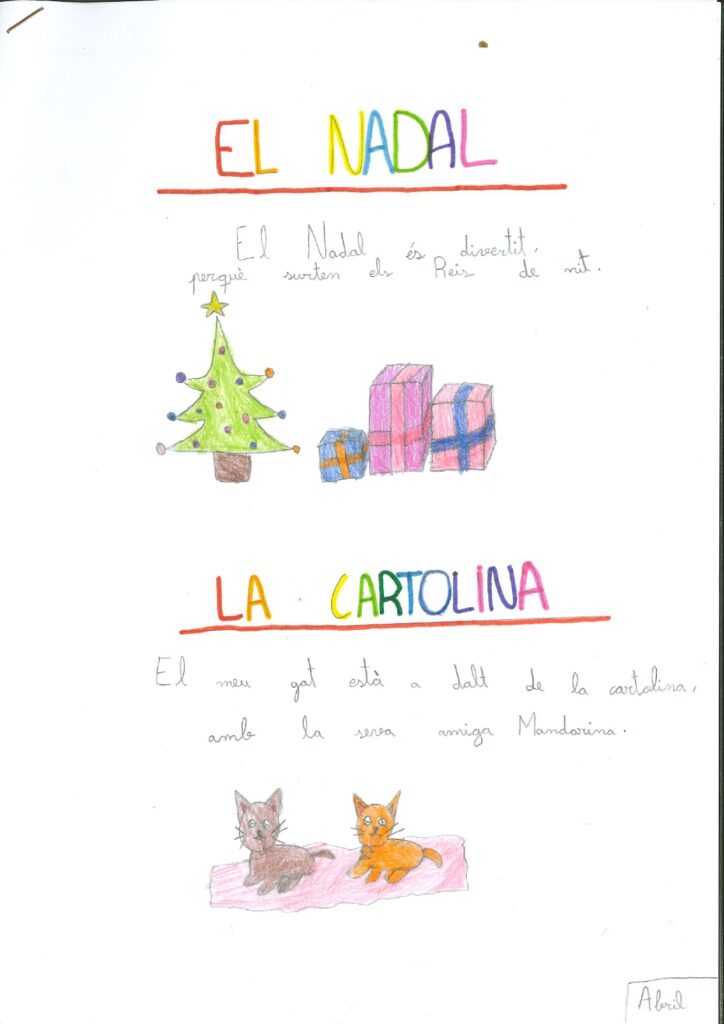 EL NADAL
El Nadal és divertit,
perquè surten els Reis de nit.
LA CARTOLINA
El meu gat està a dalt de la cartolina,
amb la seva amiga Mandarina.
Abril